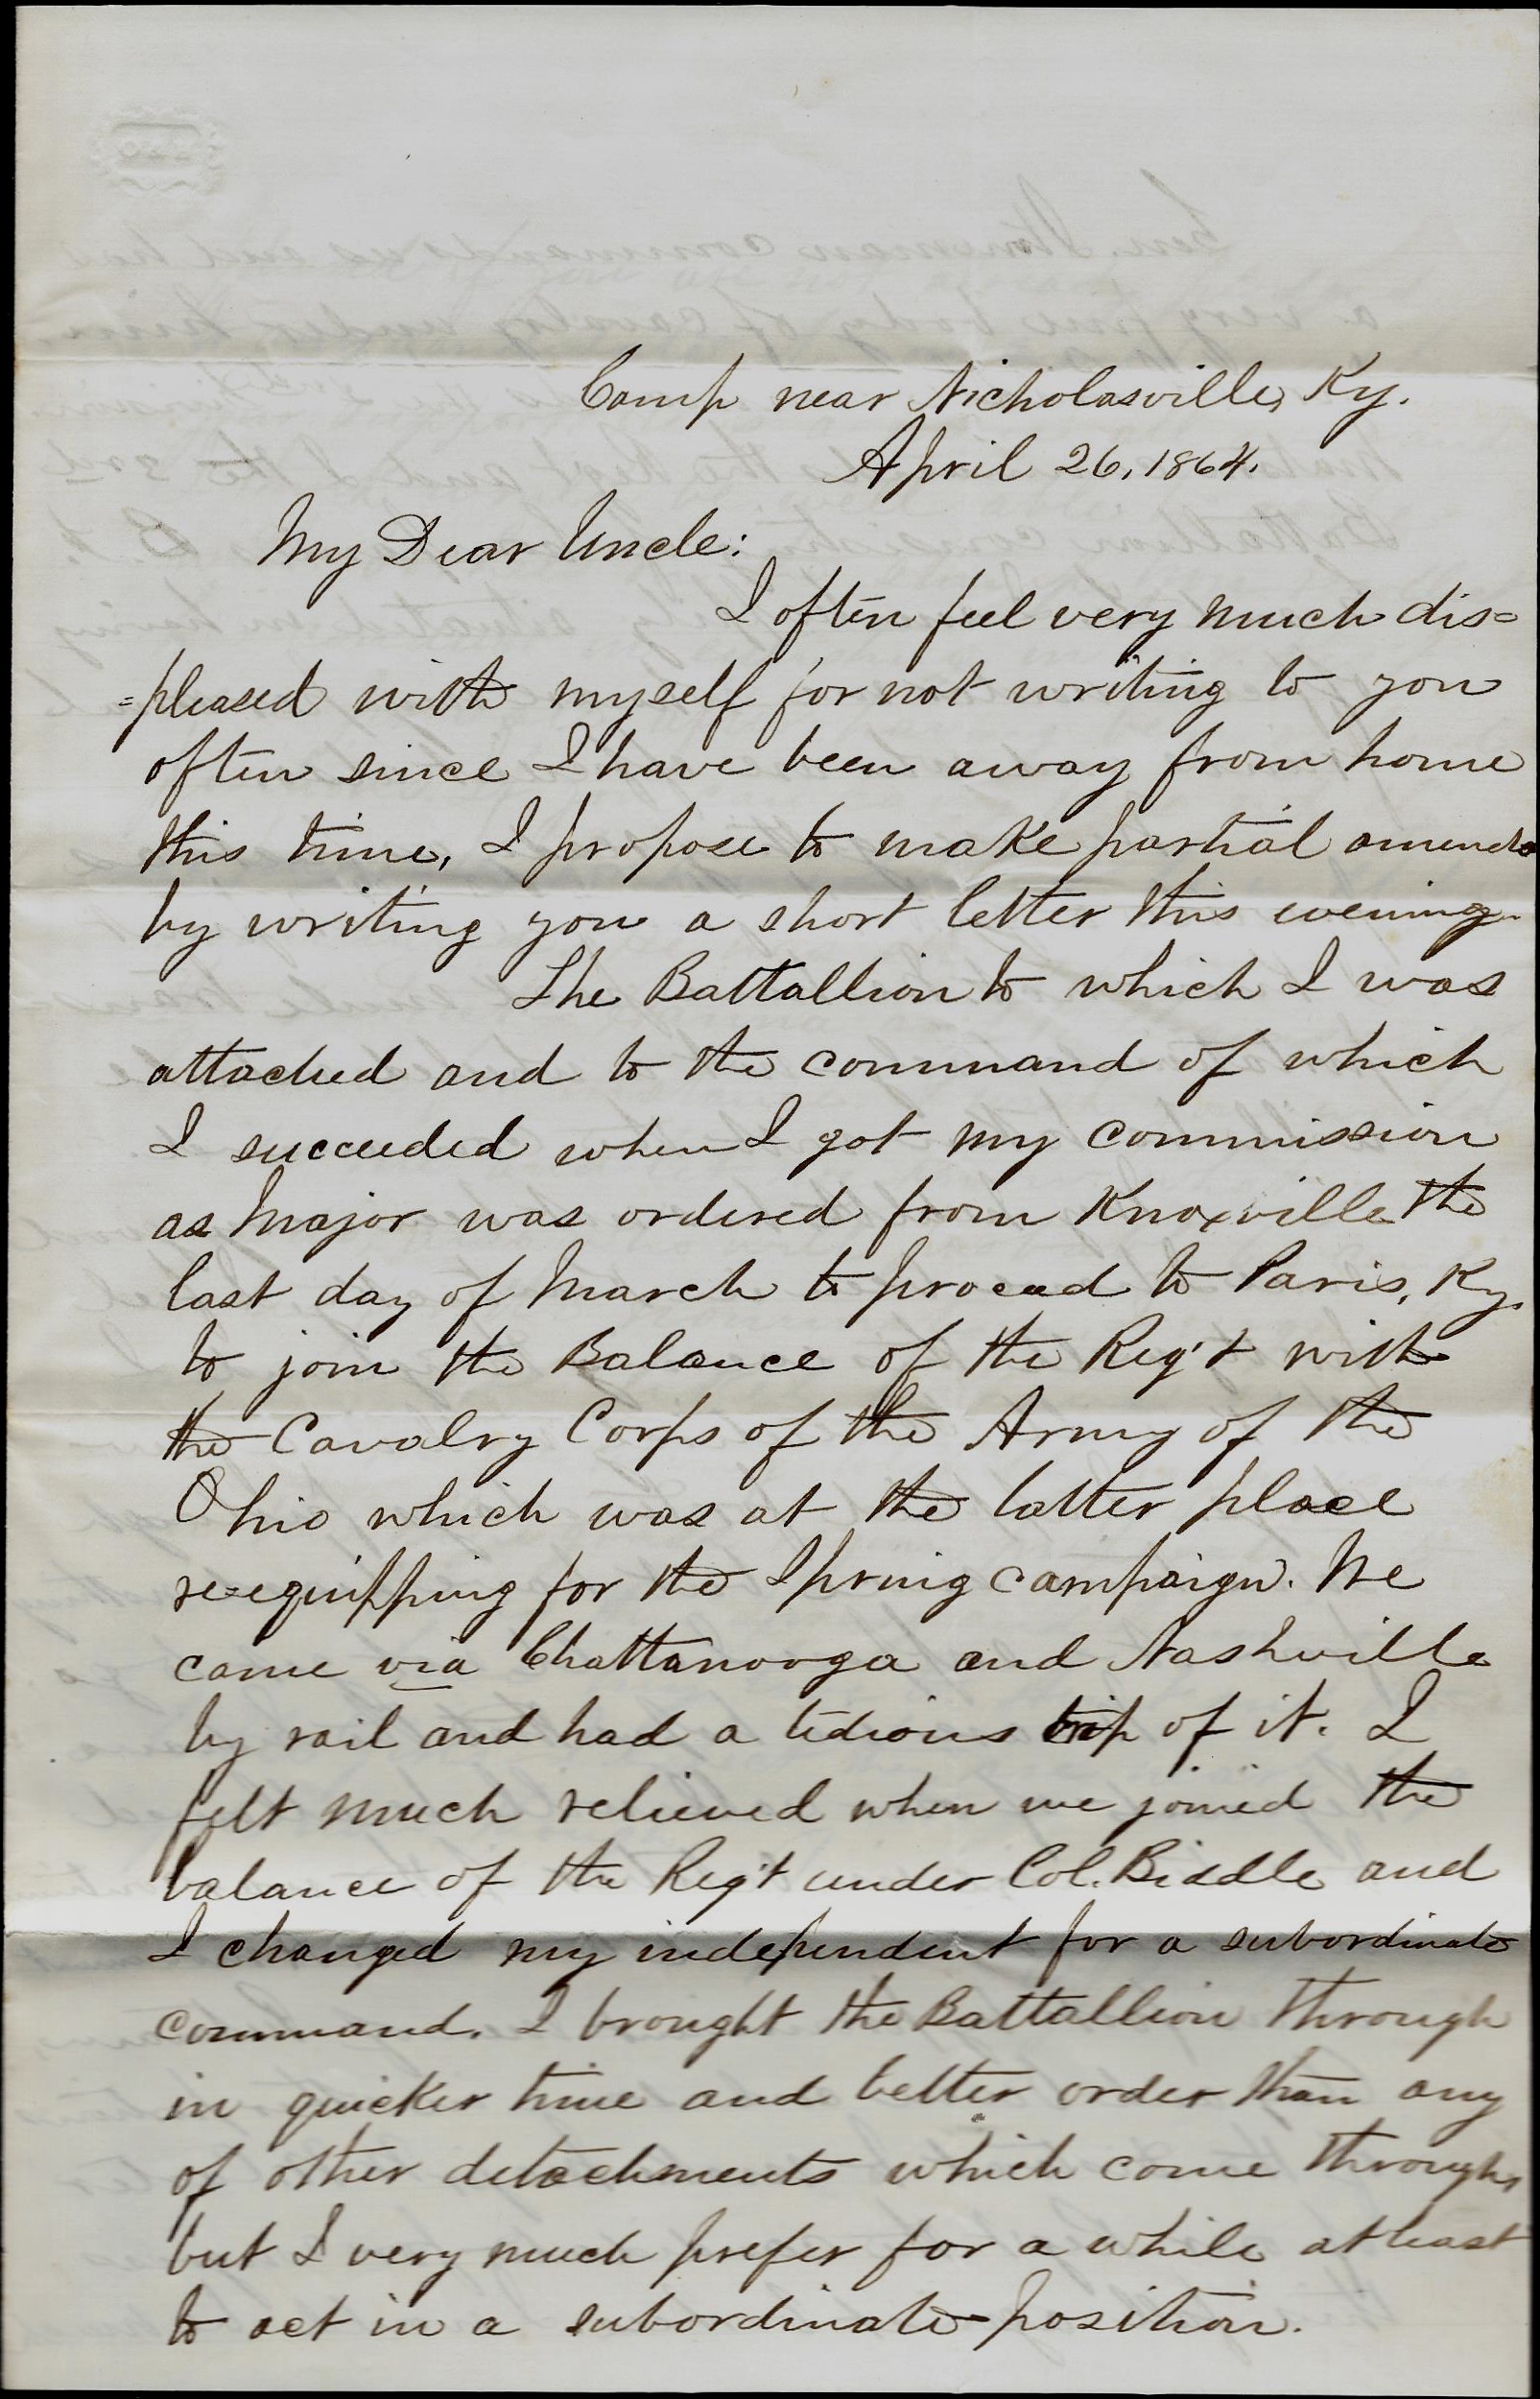 Camp near Nicholasville, Ky.
April 26, 1864.
My Dear Uncle:
I often feel very much dis=
=pleased with myself for not writing to you
often since I have been away from home
this time, I propose to make partial amends
by writing you a short letter this evening.
The Battallion to which I was
attached and to the command of which
I succeeded when I got my commission
as Major was ordered from Knoxville the
last day of March to proceed to Paris, Ky.
to join the Balance of the Reg't with
the Cavalry Corps of the Army of the
Ohio which was at the latter place
re=equipping for the Spring campaign. We
came via Chattanooga and Nashville
by rail and had a tedious trip of it. I
felt much relieved when we joined the
balance of the Reg't under Col. Biddle and
I changed my independent for a subordinate
command. I brought the Battallion through
in quicker time and better order than any
of other detachments which come through,
but I very much prefer for a while at least
to act in a subordinate position.